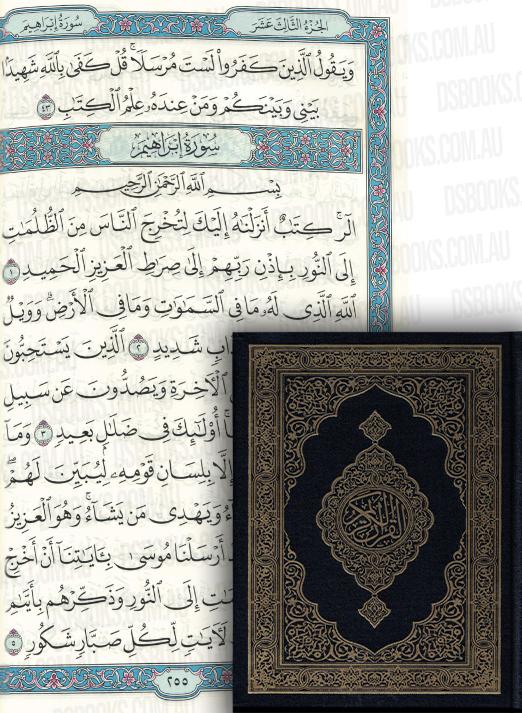 الجزء الثالث عشر سورة إبراهيم
وَيَقُولُ ٱلَّذِينَ كَفَرُوا۟ لَسْتَ مُرْسَلًا ۚ قُلْ كَفَىٰ بِٱللَّهِ شَهِيدًۢا
بَيْنِى وَبَيْنَكُمْ وَمَنْ عِندَهُۥ عِلْمُ ٱلْكِتَٰبِ ٤٣
سُورَةُ إِبْرَاهِيمَ
بِسْمِ ٱللَّهِ ٱلرَّحْمَٰنِ ٱلرَّحِيمِ
الٓر ۚ كِتَٰبٌ أَنزَلْنَٰهُ إِلَيْكَ لِتُخْرِجَ ٱلنَّاسَ مِنَ ٱلظُّلُمَٰتِ
إِلَى ٱلنُّورِ بِإِذْنِ رَبِّهِمْ إِلَىٰ صِرَٰطِ ٱلْعَزِيزِ ٱلْحَمِيدِ ١
ٱللَّهِ ٱلَّذِى لَهُۥ مَا فِى ٱلسَّمَٰوَٰتِ وَمَا فِى ٱلْأَرْضِ ۗ وَوَيْلٌ
شَدِيدٍ ٢ ٱلَّذِينَ يَسْتَحِبُّونَ
ٱلْءَاخِرَةِ وَيَصُدُّونَ عَن سَبِيلِ
أُو۟لَٰٓئِكَ فِى ضَلَٰلٍۭ بَعِيدٍ ٣ وَمَآ
إِلَّا بِلِسَانِ قَوْمِهِۦ لِيُبَيِّنَ لَهُمْ ۖ
وَيَهْدِى مَن يَشَآءُ ۚ وَهُوَ ٱلْعَزِيزُ
أَرْسَلْنَا مُوسَىٰ بِـَٔايَٰتِنَآ أَنْ أَخْرِجْ
إِلَى ٱلنُّورِ وَذَكِّرْهُم بِأَيَّىٰمِ
لَءَايَٰتٍ لِّكُلِّ صَبَّارٍ شَكُورٍ ٥
٢٥٥
القرآن الكريم
DSBOOKS.COM.AU